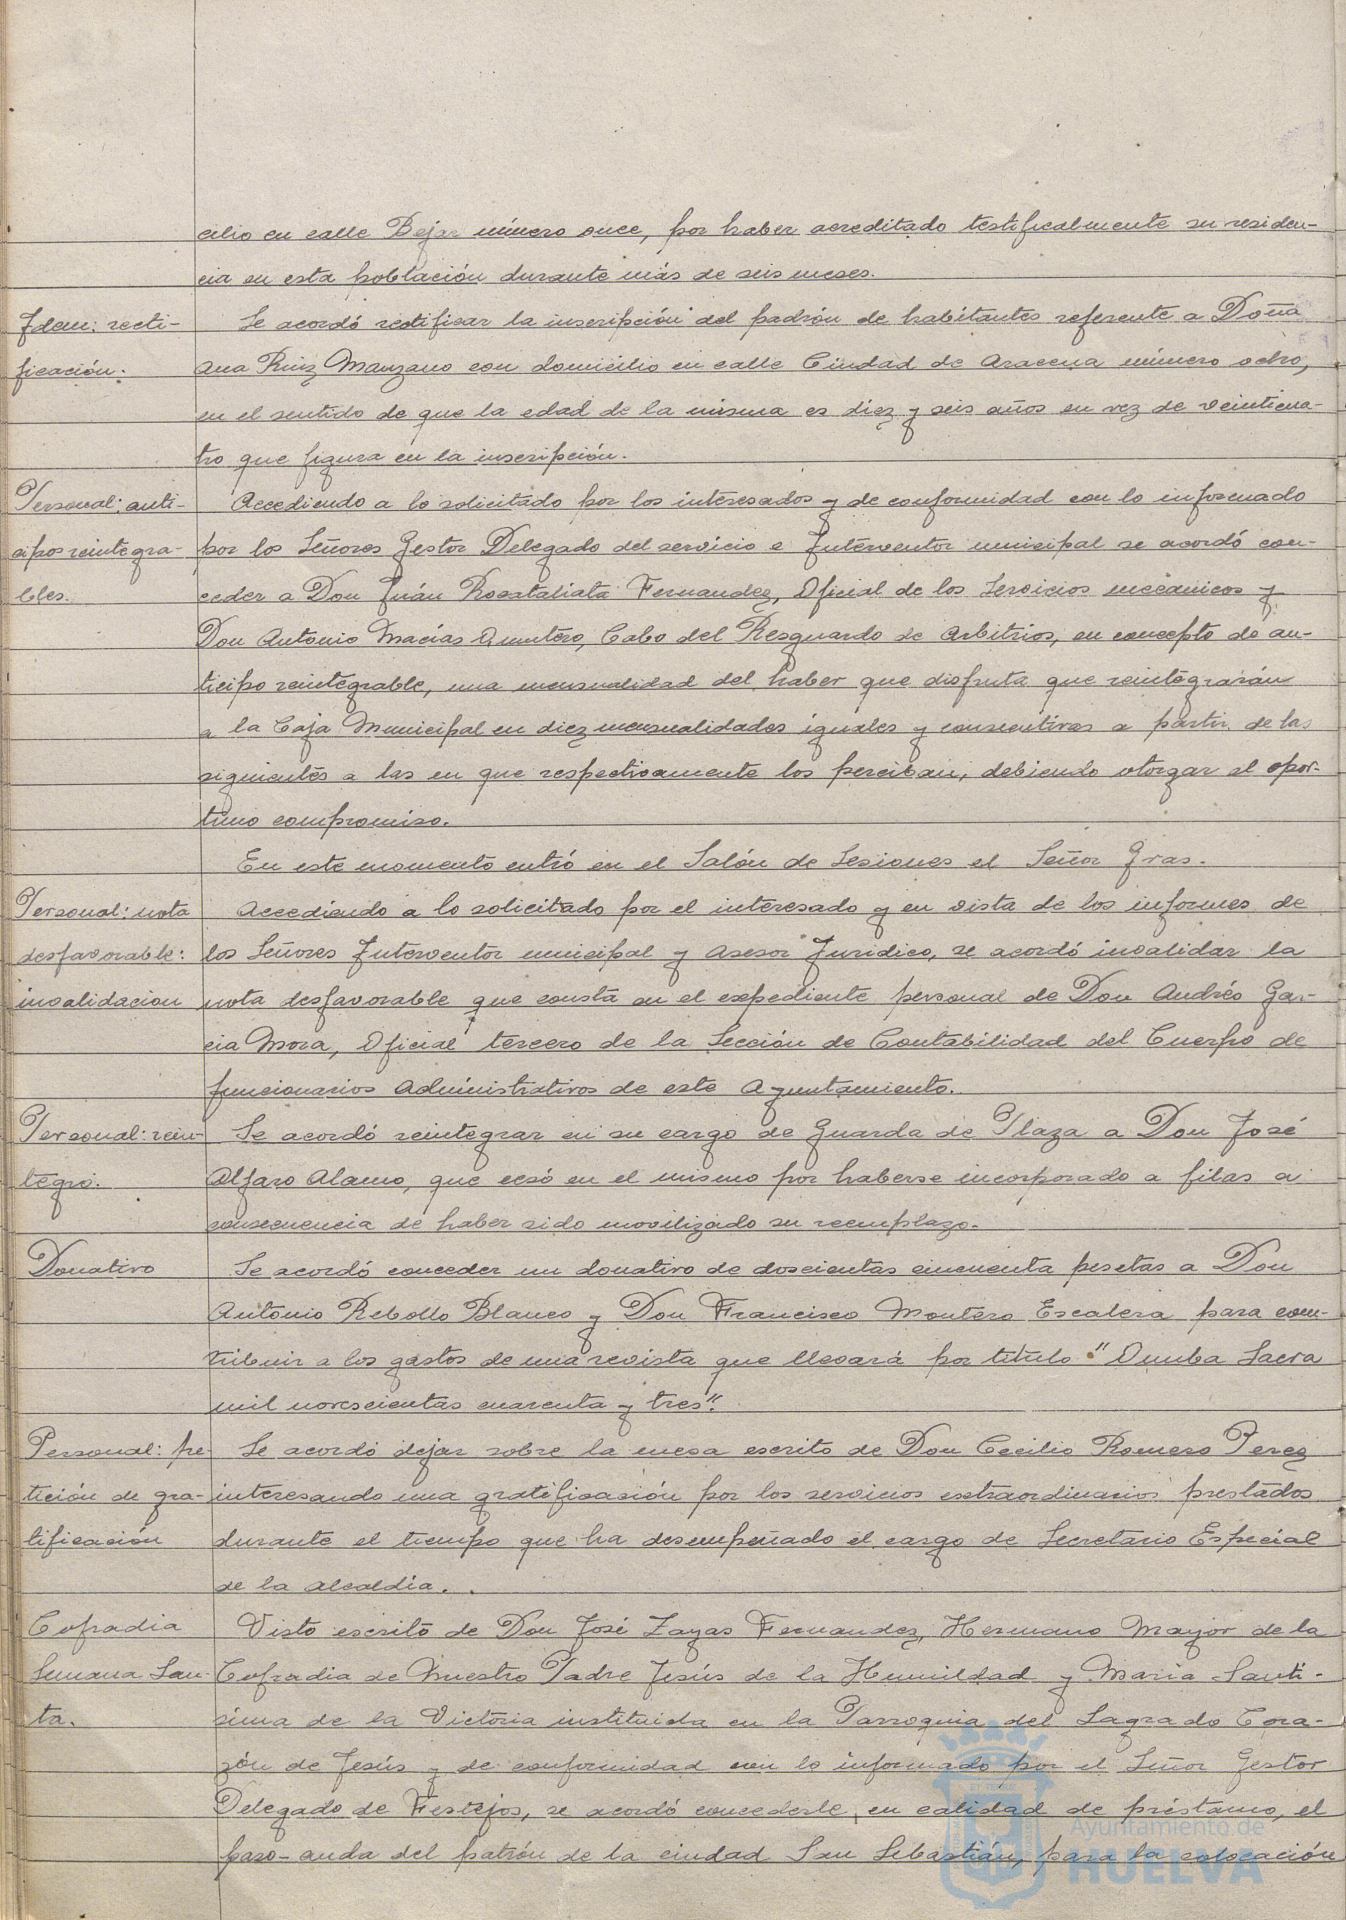 cilio en calle Bejar número once, por haber acreditado testificalmente su residen-
cia en esta población durante más de seis meses.
Idem: recti-
ficación.
Se acordó rectificar la inscripción del padrón de habitantes referente a Doña
Ana Ruiz Manzano con domicilio en calle Ciudad de Aracena número ocho,
en el sentido de que la edad de la misma es diez y seis años en vez de veinticua-
tro que figura en la inscripción.
Personal: anti-
cipos reintegra-
bles.
Accediendo a lo solicitado por los interesados y de conformidad con lo informado
por los Señores Gestor Delegado del servicio e Interventor municipal se acordó con-
ceder a Don Juán Rocataliata Fernandez, Oficial de los Servicios mecánicos y
Don Antonio Macías Quintero, Cabo del Resguardo de Arbitrios, en concepto de an-
ticipo reintegrable, una mensualidad del haber que disfruta que reintegrarán
a la Caja Municipal en diez mensualidades iguales y consecutivas a partir de las
siguientes a las en que respectivamente los perciban, debiendo otorgar el opor-
tuno compromiso.
En este momento entró en el Salón de Sesiones el Señor Gras.
Personal: nota
desfavorable:
invalidacion
Accediendo a lo solicitado por el interesado y en vista de los informes de
los Señores Interventor municipal y Asesor Jurídico, se acordó invalidar la
nota desfavorable que consta en el expediente personal de Don Andrés Gar-
cia Mora, Oficial tercero de la Sección de Contabilidad del Cuerpo de
funcionarios Administrativos de este Ayuntamiento.
Personal: rein-
tegro.
Se acordó reintegrar en su cargo de Guarda de Plaza a Don José
Alfaro Alamo, que cesó en el mismo por haberse incorporado a filas a
consecuencia de haber sido movilizado su reemplazo.
Donativo
Se acordó conceder un donativo de doscientas cincuenta pesetas a Don
Antonio Rebollo Blanco y Don Francisco Montero Escalera para con-
tribuir a los gastos de una revista que llevará por título "Onuba Sacra
mil novescientas cuarenta y tres".
Personal: pe-
tición de gra-
tificación
Se acordó dejar sobre la mesa escrito de Don Cecilio Romero Perez
interesando una gratificación por los servicios extraordinarios prestados
durante el tiempo que ha desempeñado el cargo de Secretario Especial
de la Alcaldia.
Cofradia
Semana San-
ta.
Visto escrito de Don José Zayas Fernandez, Hermano Mayor de la
Cofradia de Nuestro Padre Jesús de la Humildad y Maria Santi-
sima de la Victoria instituida en la Parroquia del Sagrado Cora-
zón de Jesús y de conformidad con lo informado por el Señor Gestor
Delegado de Festejos, se acordó concederle, en calidad de préstamo, el
paso-anda del patrón de la ciudad San Sebastián, para la colocación
Ayuntamiento de
HUELVA